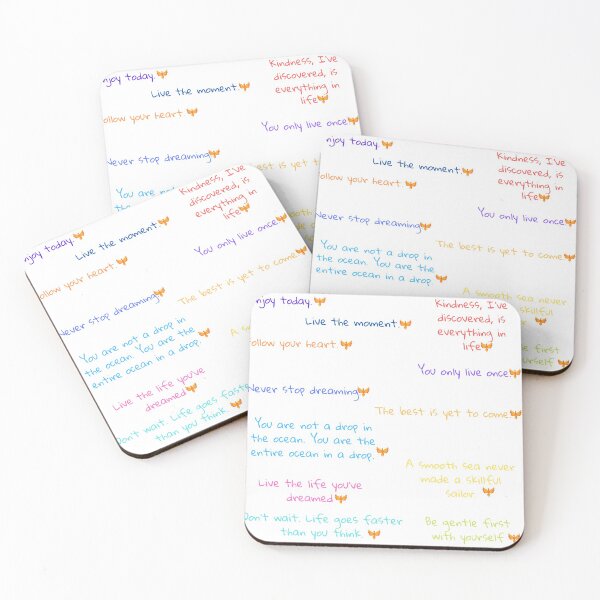 njoy today.
Live the moment
Kindness, I've
discovered, is
everything in
life
ollow your heart
You only live once.
Never stop dreaming
best is yet to
You are not a
njoy today.
Live the moment
Kindness, I've
discovered, is
everything in
life
ollow your heart
You only live once.
Never stop dreaming
The best is yet to come.
You are not a drop in
the ocean. You are the
entire ocean in a drop.
A smooth sea never
skillful
first
njoy today.
Live the moment
Kindness, I've
discovered, is
everything in
life
ollow your heart
You only live once.
Never stop dreaming
The best is yet to come.
You are not a drop in
the ocean. You are the
entire ocean in a drop.
A
Live the life you've
dreamed
Don't wait. Life goes faste
than you think.
njoy today.
Live the moment
Kindness, I've
discovered, is
everything in
life
ollow your heart.
You only live once.
Never stop dreaming
The best is yet to come.
You are not a drop in
the ocean. You are the
entire ocean in a drop.
A smooth sea never
made a skillful
sailor.
Live the life you've
dreamed
Don't wait. Life goes faster
than you think.
Be gentle first
with yourself